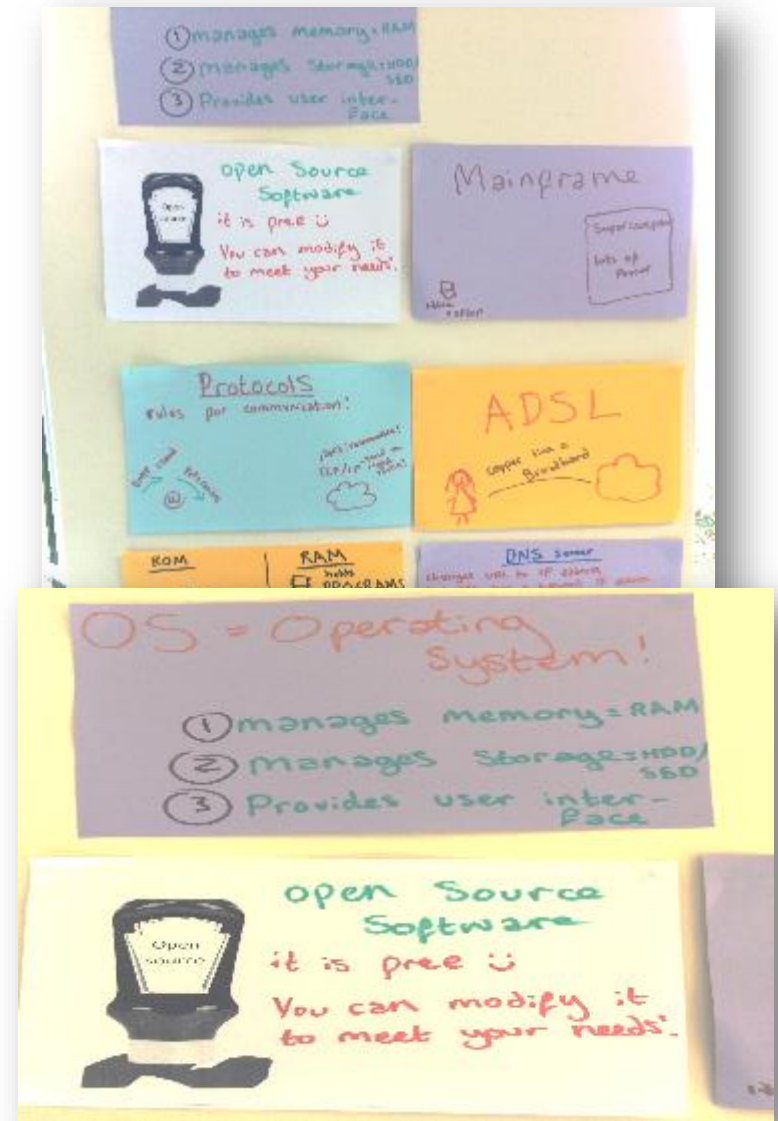 ① manages memory = RAM
② manages Storage = HDD/
SSD
③ Provides user inter-
face
open Source
Software
Open
source
it is free
You can modify it
to meet your needs.
Mainframe
Supercomputer
lots of
Power
Protocols
rules for communication!
TCP/IP
@
ADSL
copper line =
Broadband
ROM
RAM
holds
PROGRAMS
DNS server
changes URL to IP address
OS = Operating
System!
① manages memory = RAM
② manages Storage = HDD/
SSD
③ Provides user inter-
face
open Source
Software
Open
source
it is free
You can modify it
to meet your needs.